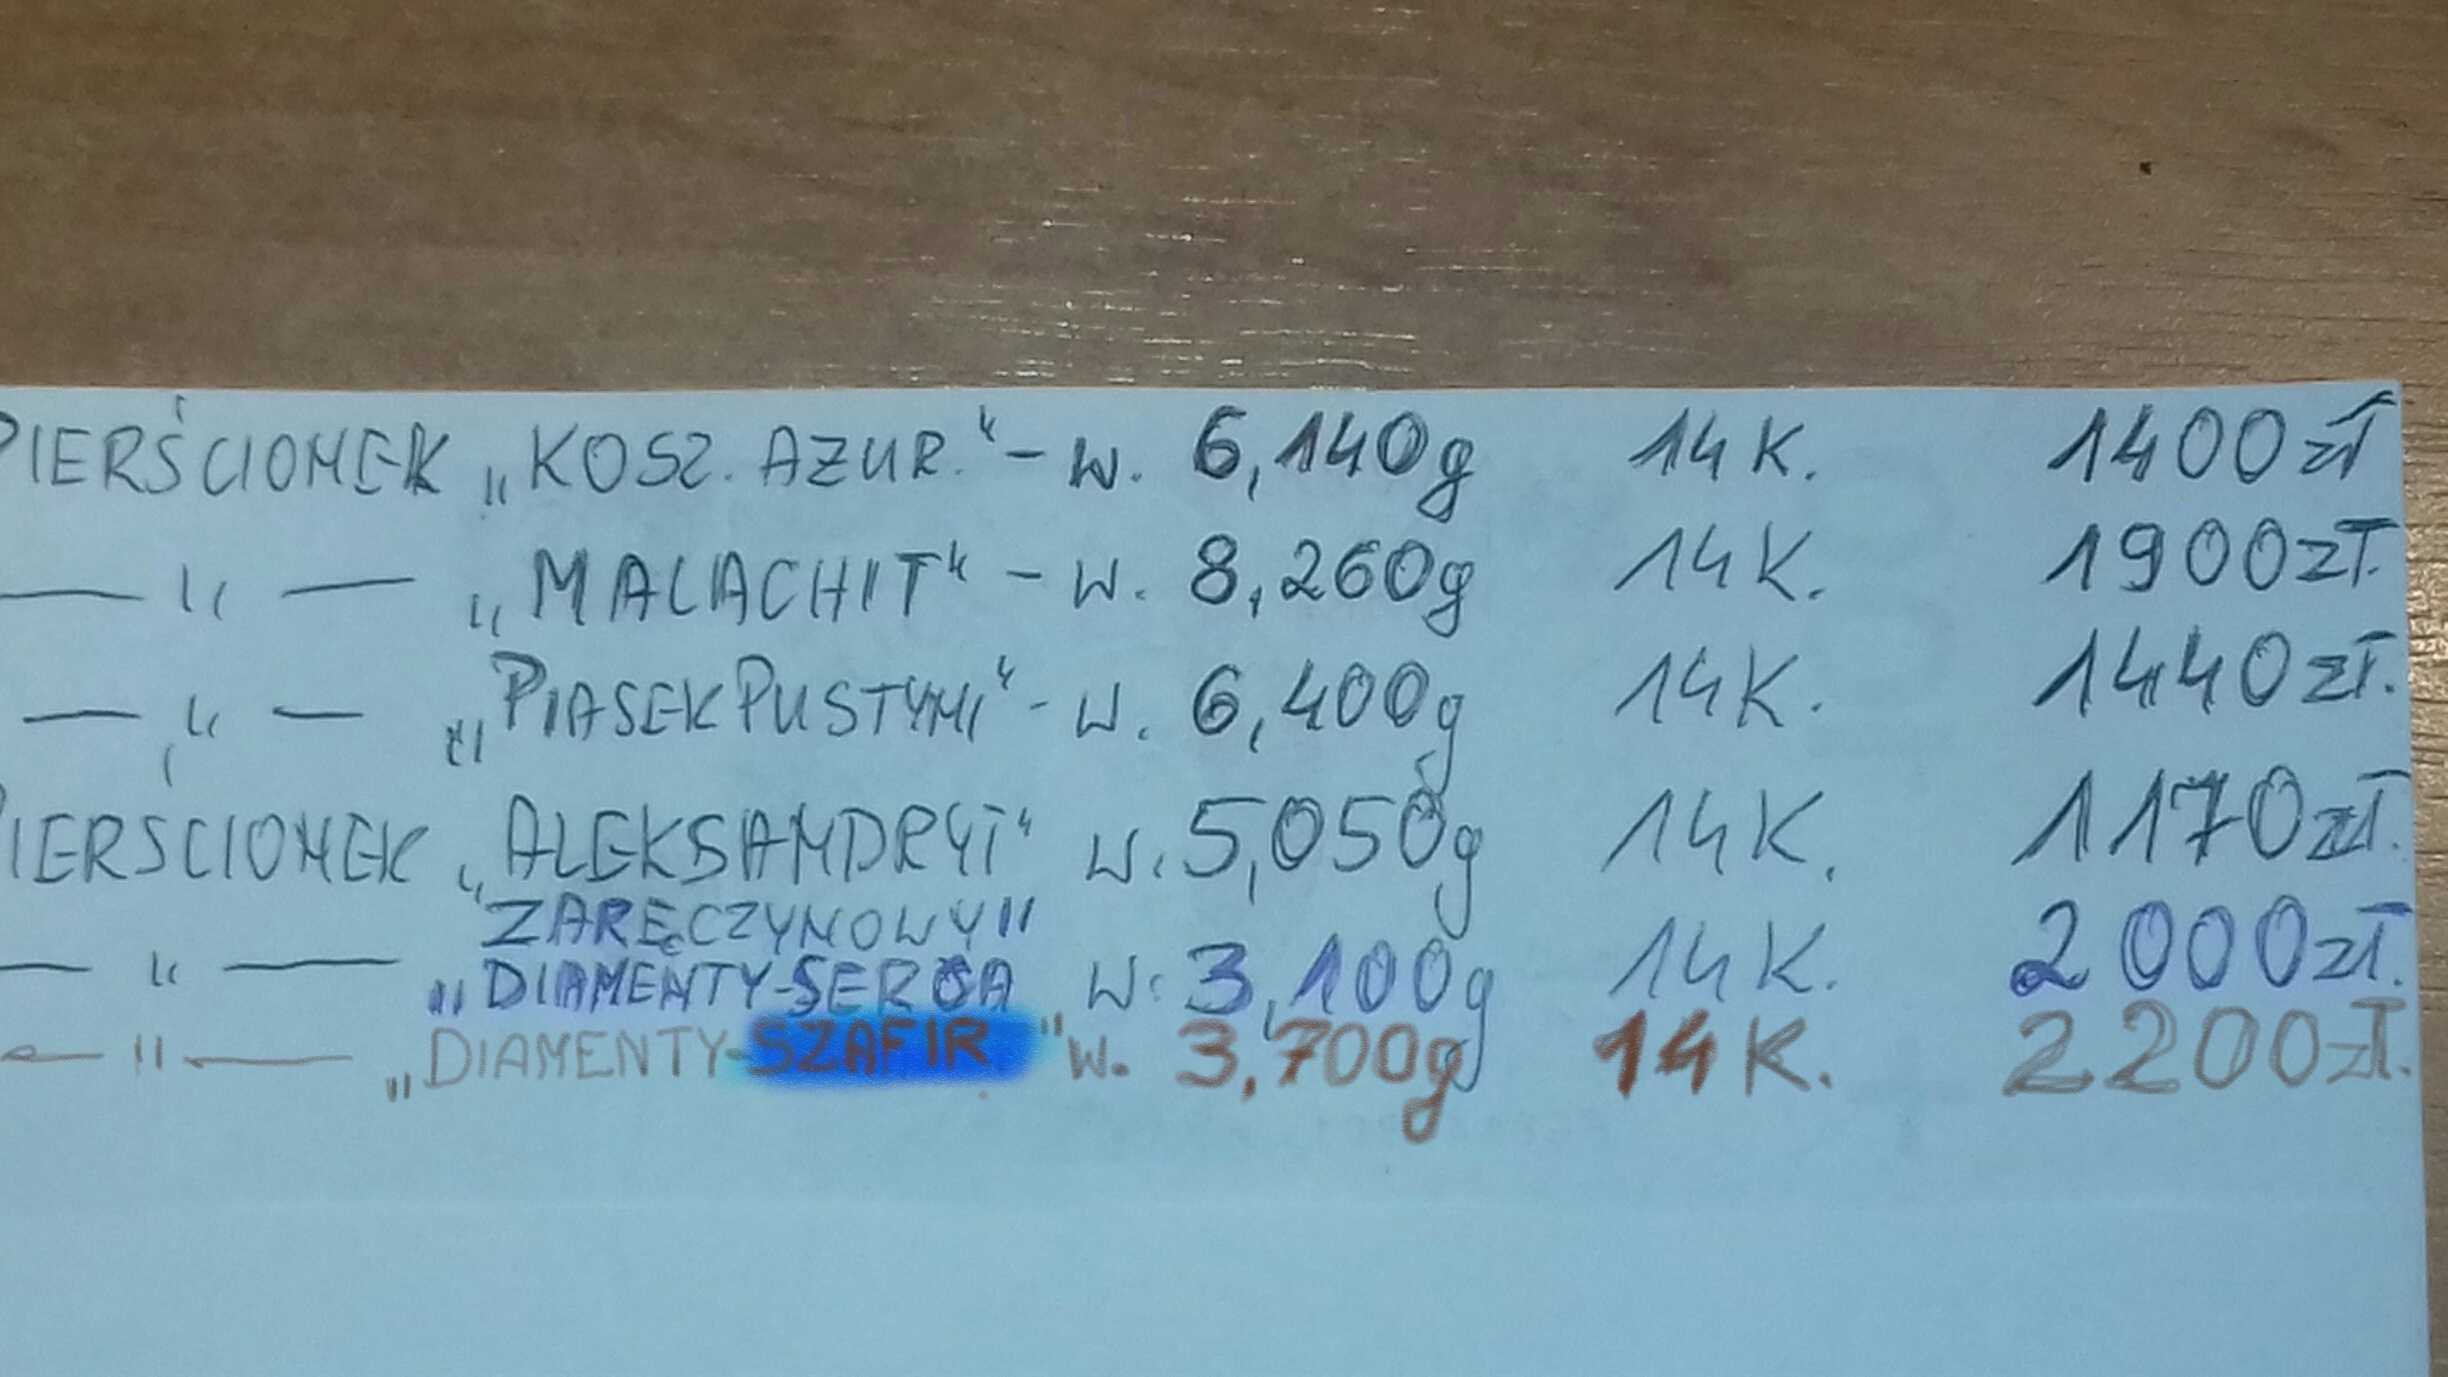 PIERŚCIONEK „KOSZ. AZUR.“ - w. 6,140g 14 K. 1400 zł
— “ — „MALACHIT“ - w. 8,260g 14 K. 1900 zł.
— “ — „PIASEK PUSTYNI“ - w. 6,400g 14 K. 1440 zł.
PIERŚCIONEK „ALEKSANDRYT“ w. 5,050g 14 K. 1170 zł.
ZARĘCZYNOWY"
— “ — „DIAMENTY-SERCA w. 3,100g 14 K. 2000 zł.
— " — „DIAMENTY-SZAFIR" w. 3,700g 14 K. 2200 zł.